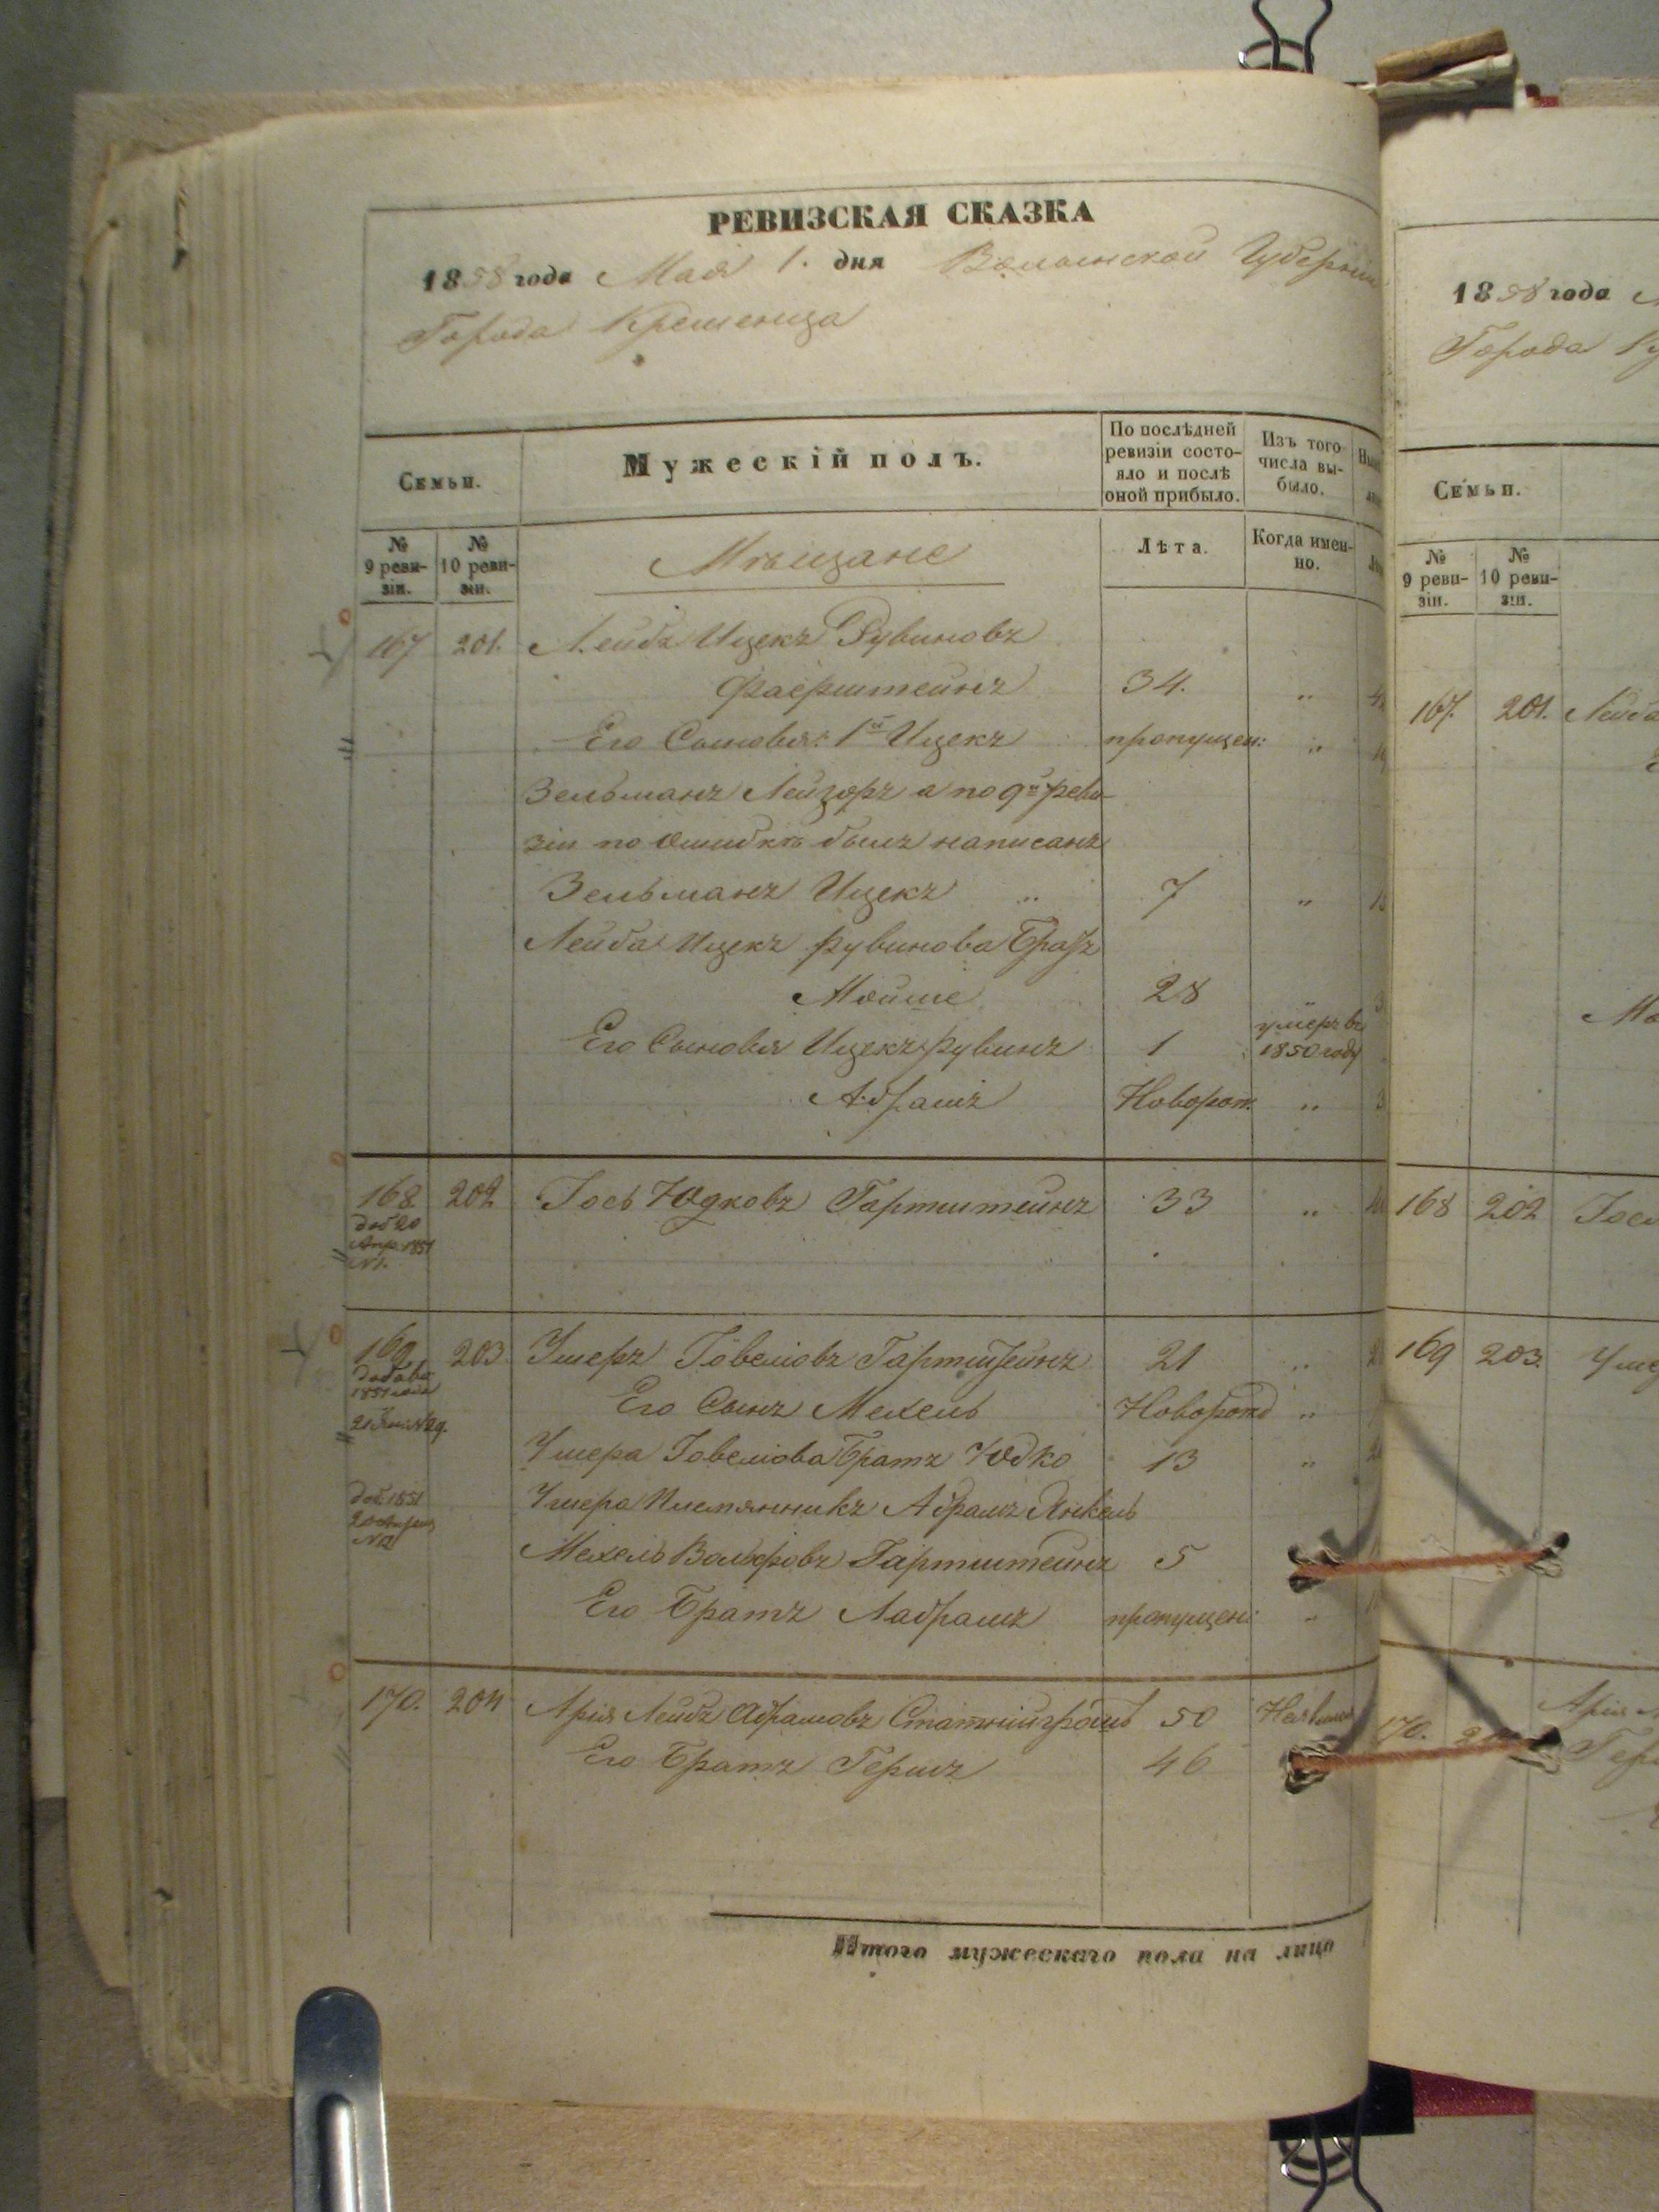 РЕВИЗСКАЯ СКАЗКА
1858 года Мая 1. дня Волынской Губерніи
Города Кременца
Семьи.
Мужескій полъ.
По послѣдней ревизіи состо-
яло и послѣ
оной прибыло.
Изъ того
числа вы-
было.
№
9 реви-
зіи.
№
10 реви-
зіи.
Мѣщане
Лѣта.
Когда имен-
но.
167 201. Лейба Ицекъ Рувиновъ
Фаерштейнъ 34. „
Его Сыновья: 1й Ицекъ пропущен: „
Зельманъ Лейзоръ а по 9й реви-
зіи по ошибкѣ былъ написанъ
Зельманъ Ицекъ „ 7 „
Лейба Ицекъ Рувинова Братъ
Мойше 28
Его Сыновья Ицекъ Рувинъ 1 умеръ въ
1850 году
Абрамъ Новорож. „
168 202 Іось Юдковъ Гартштейнъ 33 „
доб 20
Апр. 1851
№1.
169 203 Ушеръ Іовеліовъ Гартштейнъ 21 „
Добав.
1851 года
Его Сынъ Мехель Новорожд „
Ушера Іовеліова Братъ Юдко 13 „
доб. 1851
Ушера Племянникъ Абрамъ Янкель
Мехель Вольфовъ Гартштейнъ 5
Его Братъ пропущен: „
170. 204 Арія Лейбъ Абрамовъ 50
Его Братъ Гершъ 46
Итого мужескаго пола на лицо
1858 года
Города
Семьи.
№
9 реви-
зіи.
№
10 реви-
зіи.
167. 201. Лейба
168 202
169 203.
170.